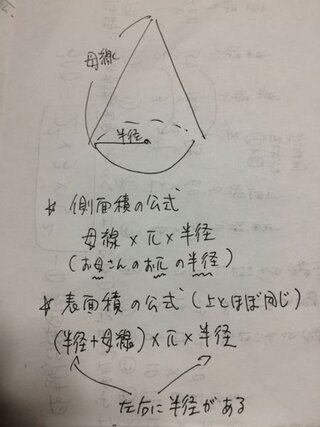 母線
半径
☆ 側面積の公式
母線×π×半径
(お母さんのお兀の半径)
☆ 表面積の公式(上とほぼ同じ)
(半径+母線)×π×半径
左右に半径がある